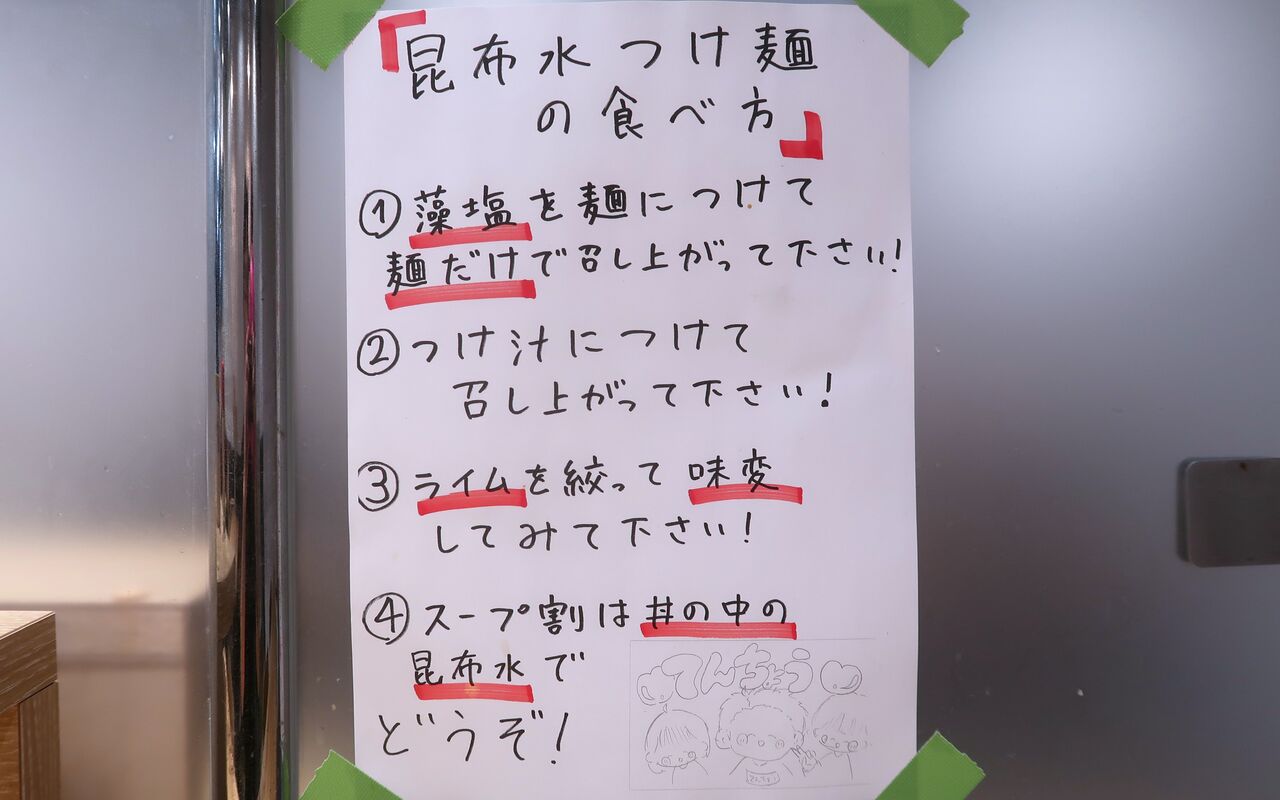 『昆布水つけ麺
の食べ方』
①藻塩を麺につけて
麺だけで召し上がって下さい!
②つけ汁につけて
召し上がって下さい!
③ライムを絞って味変
してみて下さい!
④スープ割は丼の中の
昆布水で
どうぞ!
てんちょう